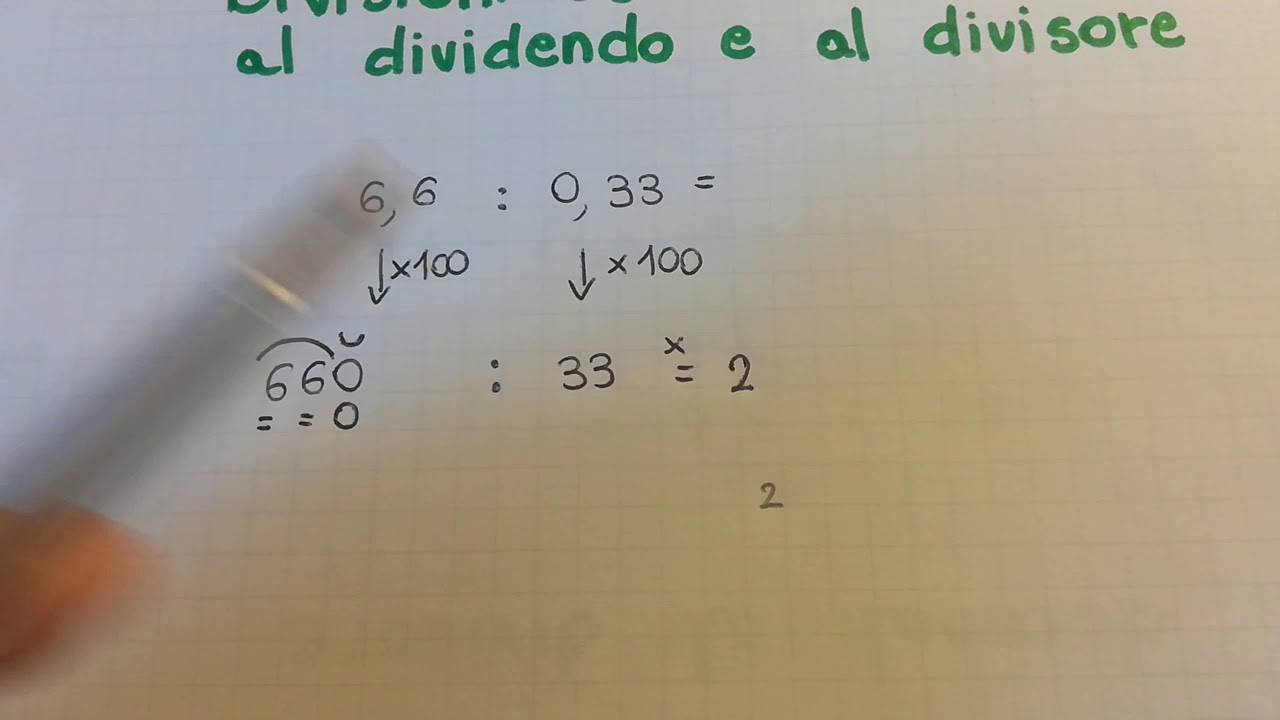 al dividendo e al divisore
6,6 : 0,33 =
↓ x100 ↓ x 100
x
660 : 33 = 2
= = 0
2